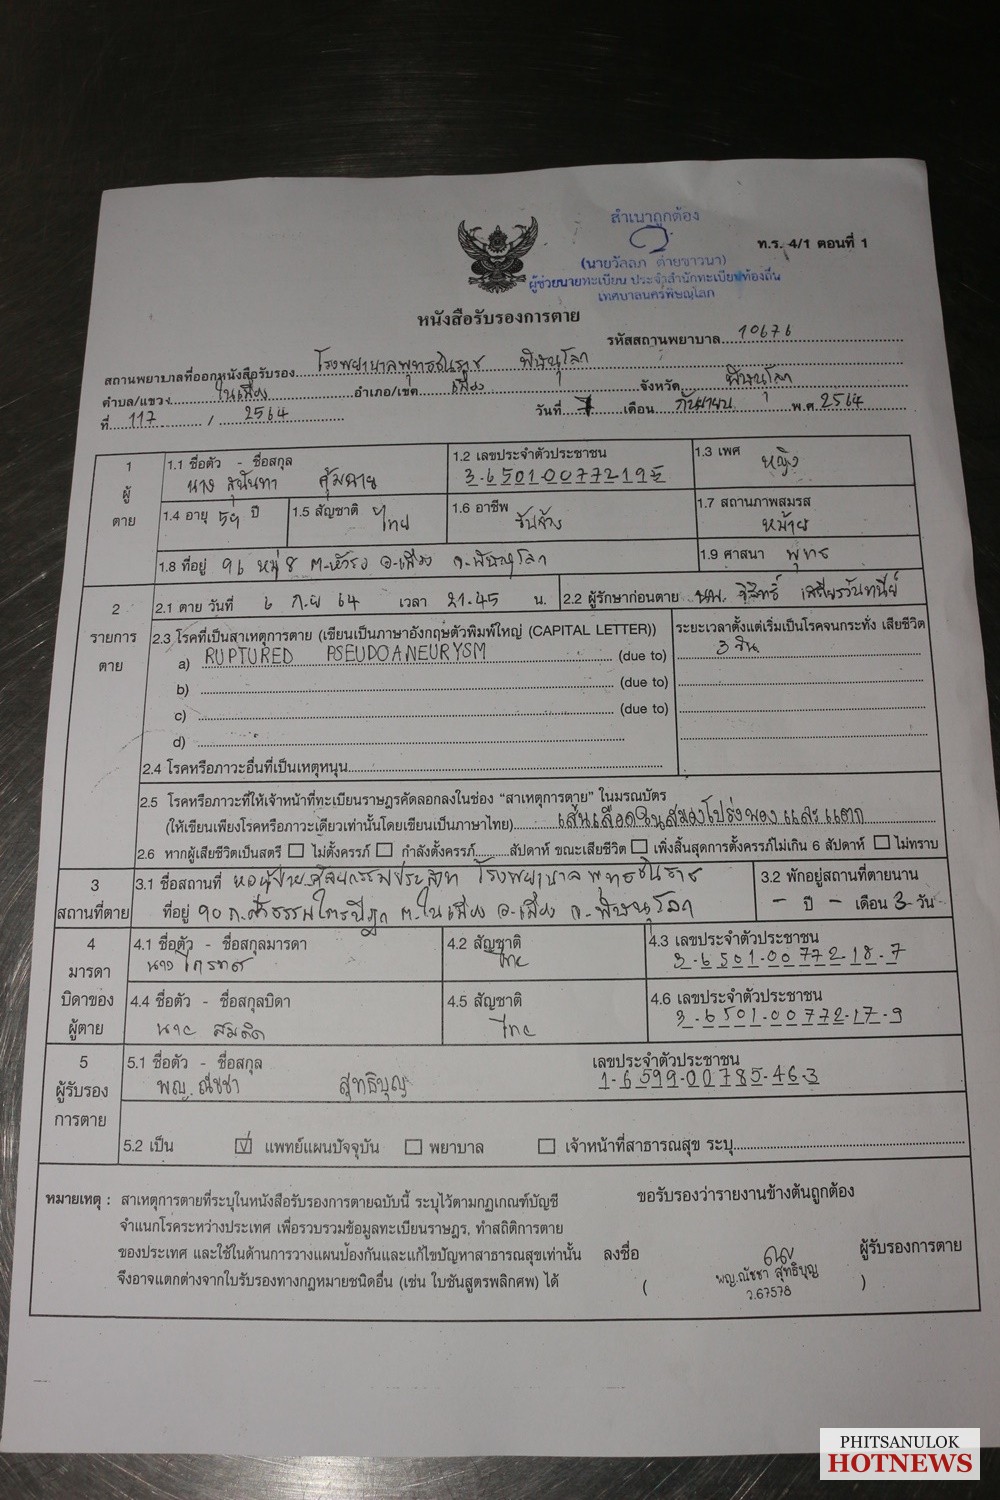 สำเนาถูกต้อง
ท.ร. 4/1 ตอนที่ 1
(นายวัลลภ ค่ายชาวนา)
ผู้ช่วยนายทะเบียน ประจำสำนักทะเบียนท้องถิ่น
เทศบาลนครพิษณุโลก
หนังสือรับรองการตาย
รหัสสถานพยาบาล 10676
สถานพยาบาลที่ออกหนังสือรับรอง โรงพยาบาลพุทธชินราช พิษณุโลก
ตำบล/แขวง ในเมือง อำเภอ/เขต เมือง จังหวัด พิษณุโลก
ที่ 117 / 2564 วันที่ 7 เดือน กันยายน พ.ศ. 2564
1 ผู้ตาย
1.1 ชื่อตัว - ชื่อสกุล
นาง สุนันทา
1.2 เลขประจำตัวประชาชน
3-6501-00772-19-5
1.3 เพศ หญิง
1.4 อายุ 59 ปี
1.5 สัญชาติ ไทย
1.6 อาชีพ รับจ้าง
1.7 สถานภาพสมรส
หม้าย
1.8 ที่อยู่ 96 หมู่ 8 ต.หัวรอ อ.เมือง จ.พิษณุโลก
1.9 ศาสนา พุทธ
2 รายการตาย
2.1 ตาย วันที่ 6 ก.ย 64 เวลา 21.45 น.
2.2 ผู้รักษาก่อนตาย นพ.
2.3 โรคที่เป็นสาเหตุการตาย (เขียนเป็นภาษาอังกฤษตัวพิมพ์ใหญ่ (CAPITAL LETTER))
ระยะเวลาตั้งแต่เริ่มเป็นโรคจนกระทั่ง เสียชีวิต
a) RUPTURED PSEUDOANEURYSM (due to) 3 วัน
b) (due to)
c) (due to)
d)
2.4 โรคหรือภาวะอื่นที่เป็นเหตุหนุน
2.5 โรคหรือภาวะที่ให้เจ้าหน้าที่ทะเบียนราษฎรคัดลอกลงในช่อง “สาเหตุการตาย” ในมรณบัตร
(ให้เขียนเพียงโรคหรือภาวะเดียวเท่านั้นโดยเขียนเป็นภาษาไทย) เส้นเลือดในสมองโป่งพอง และแตก
2.6 หากผู้เสียชีวิตเป็นสตรี ไม่ตั้งครรภ์ กำลังตั้งครรภ์ สัปดาห์ ขณะเสียชีวิต เพิ่งสิ้นสุดการตั้งครรภ์ไม่เกิน 6 สัปดาห์ ไม่ทราบ
3 สถานที่ตาย
3.1 ชื่อสถานที่ หอผู้ป่วย ศัลยกรรมประสาท โรงพยาบาล พุทธชินราช
ที่อยู่ 90 ถ.ศรีธรรมไตรปิฎก ต.ในเมือง อ.เมือง จ.พิษณุโลก
3.2 พักอยู่สถานที่ตายนาน
- ปี - เดือน 3 วัน
4 มารดา บิดาของ ผู้ตาย
4.1 ชื่อตัว - ชื่อสกุลมารดา
นาง ไกรทศ
4.2 สัญชาติ
ไทย
4.3 เลขประจำตัวประชาชน
3-6501-00772-18-7
4.4 ชื่อตัว - ชื่อสกุลบิดา
นาย สมคิด
4.5 สัญชาติ
ไทย
4.6 เลขประจำตัวประชาชน
3-6501-00772-17-9
5 ผู้รับรอง การตาย
5.1 ชื่อตัว - ชื่อสกุล
พญ. ณัชชา สุทธิบุญ
เลขประจำตัวประชาชน
1-6599-00785-46-3
5.2 เป็น แพทย์แผนปัจจุบัน พยาบาล เจ้าหน้าที่สาธารณสุข ระบุ
หมายเหตุ : สาเหตุการตายที่ระบุในหนังสือรับรองการตายฉบับนี้ ระบุไว้ตามกฎเกณฑ์บัญชี
จำแนกโรคระหว่างประเทศ เพื่อรวบรวมข้อมูลทะเบียนราษฎร, ทำสถิติการตาย
ของประเทศ และใช้ในด้านการวางแผนป้องกันและแก้ไขปัญหาสาธารณสุขเท่านั้น
จึงอาจแตกต่างจากใบรับรองทางกฎหมายชนิดอื่น (เช่น ใบชันสูตรพลิกศพ) ได้
ขอรับรองว่ารายงานข้างต้นถูกต้อง
ลงชื่อ ผู้รับรองการตาย
( พญ.ณัชชา สุทธิบุญ )
ว.67578
PHITSANULOK
HOTNEWS